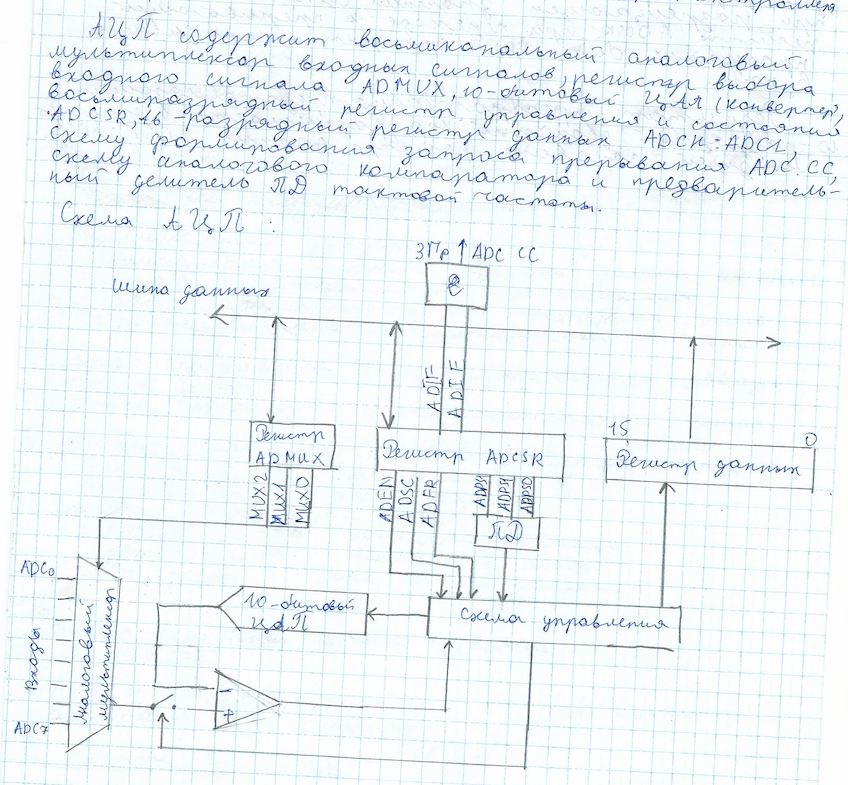 АЦП содержит восьмиканальный аналоговый
мультиплексор входных сигналов, регистр выбора
входного сигнала ADMUX, 10-битовый ЦАП (конвертер),
восьмиразрядный регистр управления и состояния
ADCSR, 16-разрядный регистр данных ADCH:ADCL,
схему формирования запроса прерывания ADC CC,
схему аналогового компаратора и предваритель-
ный делитель ПД тактовой частоты.
Схема АЦП :
ЗПр ADC CC
&
шина данных
ADIF
ADIF
Регистр
ADMUX
15
0
Регистр ADCSR
Регистр данных
MUX2
MUX1
MUX0
ADEN
ADSC
ADFR
ADPS1
ADPS0
ПД
ADC0
Входы
ADC7
Аналоговый
мультиплексор
10-битовый
ЦАП
Схема управления
-
+